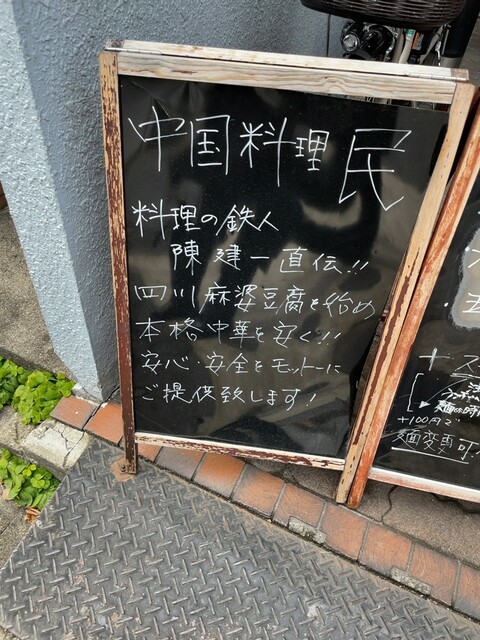 中国料理 民
料理の鉄人
陳建一直伝!!
四川麻婆豆腐を始め
本格中華を安く!!
安心・安全をモットーに
ご提供致します!
+100円で
麺変更可